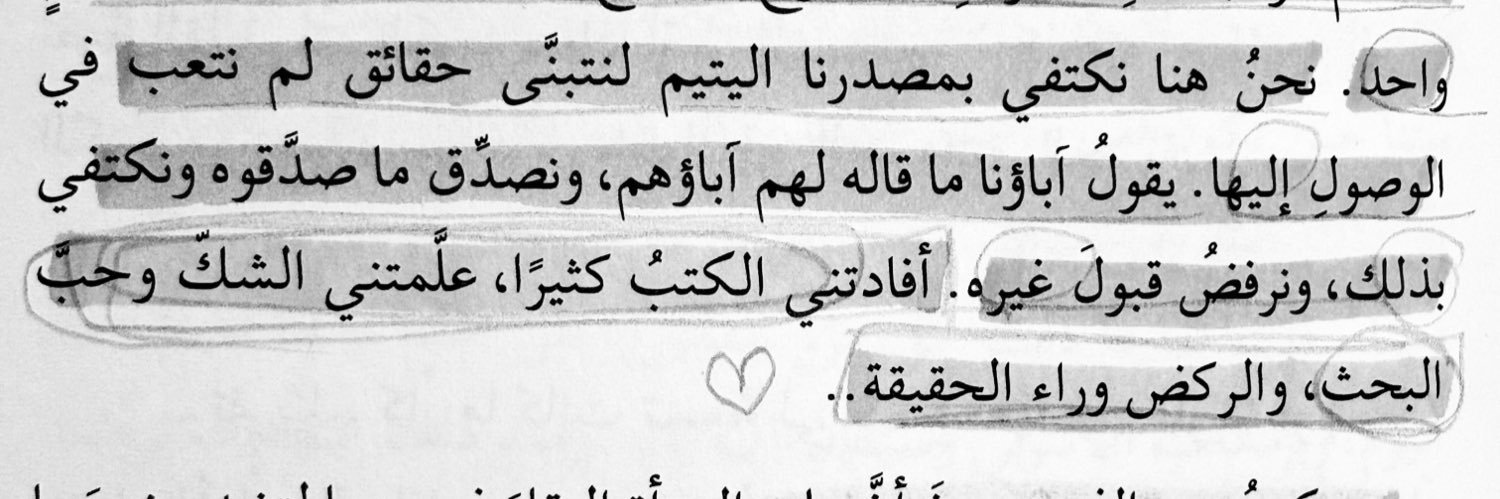 واحد. نحنُ هنا نكتفي بمصدرنا اليتيم لنتبنَّى حقائق لم نتعب في
الوصولِ إليها. يقولُ آباؤنا ما قاله لهم آباؤهم، ونصدِّق ما صدَّقوه ونكتفي
بذلك، ونرفضُ قبولَ غيره. أفادتني الكتبُ كثيرًا، علَّمتني الشكّ وحبَّ
البحث، والركض وراء الحقيقة..